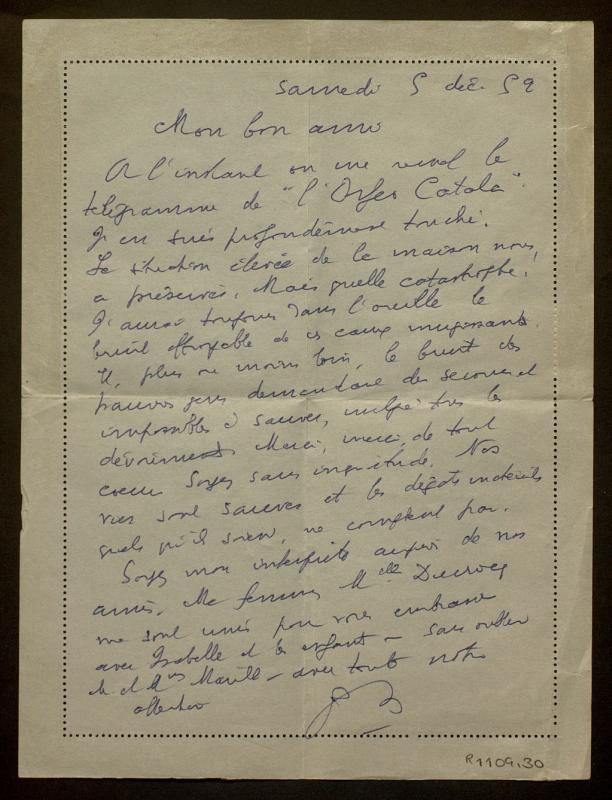 samedi 5 déc. 59
Mon bon ami
A l'instant on me remet le
télégramme de "l'Orfeo Català".
J'en suis profondément touché.
La situation élevée de la maison nous
a préservés. Mais quelle catastrophe!
J'aurai toujours dans l'oreille le
bruit effroyable de ces eaux mugissantes.
Et, plus ou moins loin, le bruit des
pauvres gens demandant des secours et
impossibles à sauver, malgré tous les
dévouements. Merci, merci, de tout
coeur. Soyez sans inquiétude. Nos
vies sont sauves et les dégâts matériels
quels qu'ils soient, ne comptent pas.
Soyez mon interprète auprès de nos
amis. Ma femme, Mlle Ducrocq
me sont unis pour vous embrasser
avec Isabelle et les enfants - sans oublier
M. et Mme - avec toute notre
affection
R 1109.30